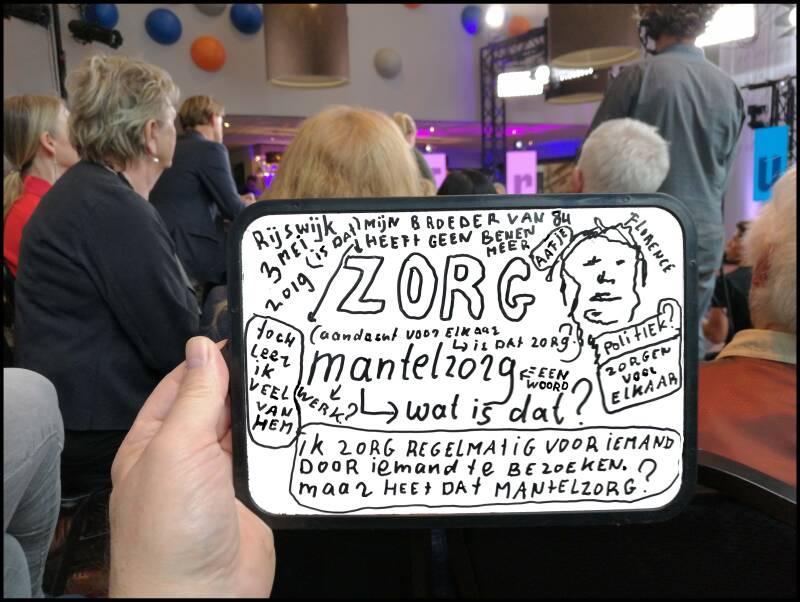 Rijswijk
3 MEI
2019
(IS DAT)
MIJN BROEDER VAN 84
HEEFT GEEN BENEN
MEER
AAFJE
FLORENCE
ZORG
(aandacht voor ELKAAR
IS DAT ZORG?
mantelzorg
EEN
WOORD
WERK?
wat is dat?
TOCH
LEER
IK
VEEL
VAN
HEM
POLITIEK?
ZORGEN
VOOR
ELKAAR
IK ZORG REGELMATIG VOOR IEMAND
DOOR iemand te BEZOEKEN.
maar HEET DAT MANTELZORG?
r
U